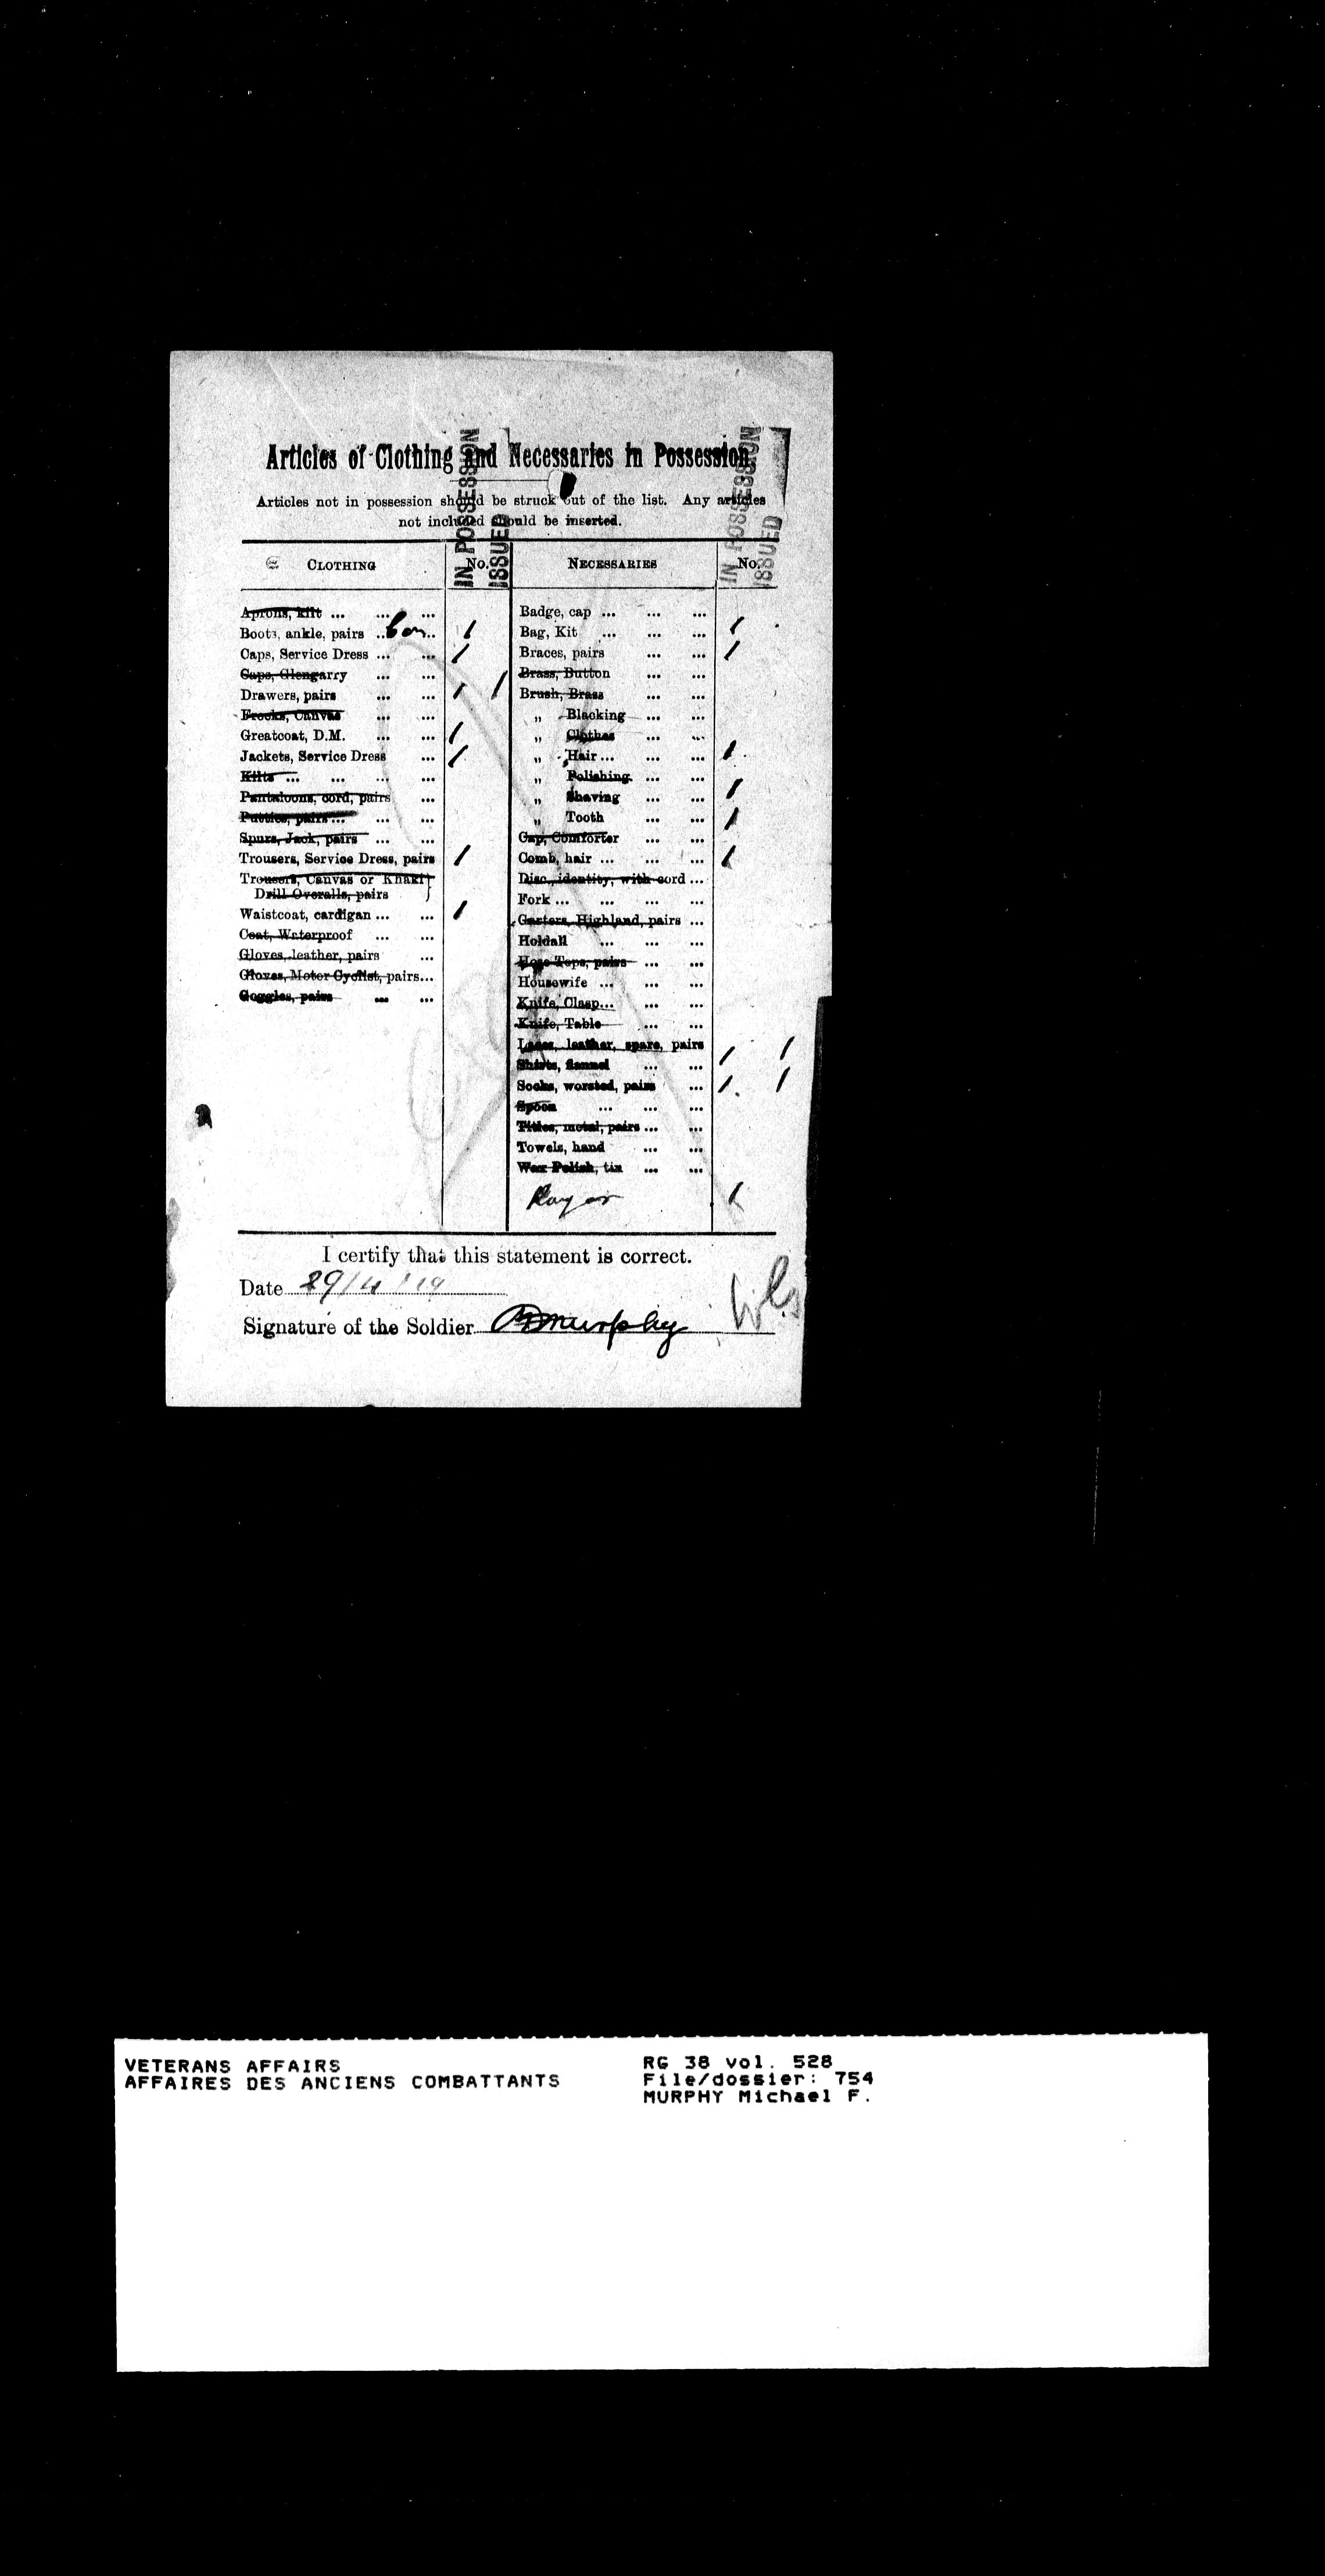 Articles of Clothing and Necessaries in Possession.
Articles not in possession should be struck out of the list. Any articles
not included should be inserted.
IN POSSESSION
ISSUED
IN POSSESSION
ISSUED
CLOTHING
No.
Aprons, kilt ... ... ...
Boots, ankle, pairs ... 1
Caps, Service Dress ... ... 1
Caps, Glengarry ... ...
Drawers, pairs ... ... 1 1
Frocks, Canvas ... ...
Greatcoat, D.M. ... ... 1
Jackets, Service Dress ... 1
Kilts ... ... ... ...
Pantaloons, cord, pairs ...
Putties, pairs ... ... ...
Spurs, Jack, pairs ... ...
Trousers, Service Dress, pairs 1
Trousers, Canvas or Khaki }
Drill Overalls, pairs }
Waistcoat, cardigan ... ... 1
Coat, Waterproof ... ...
Gloves, leather, pairs ...
Gloves, Motor Cyclist, pairs...
Goggles, pairs ... ...
NECESSARIES
No.
Badge, cap ... ... ...
Bag, Kit ... ... ... 1
Braces, pairs ... ... 1
Brass, Button ... ...
Brush, Brass ... ...
„ Blacking ... ...
„ Clothes ... ...
„ Hair ... ... ... 1
„ Polishing ... ...
„ Shaving ... ... 1
„ Tooth ... ... 1
Cap, Comforter ... ...
Comb, hair ... ... ... 1
Disc, identity, with cord ...
Fork ... ... ... ...
Garters, Highland, pairs ...
Holdall ... ... ...
Hose Tops, pairs ... ...
Housewife ... ... ...
Knife, Clasp... ... ...
Knife, Table ... ...
Laces, leather, spare, pairs
Shirts, flannel ... ... 1 1
Socks, worsted, pairs ... 1 1
Spoon ... ... ...
Titles, metal, pairs ... ...
Towels, hand ... ...
Wax Polish, tin ... ...
Razor 1
I certify that this statement is correct.
Date 29/4/19
Signature of the Soldier Murphy
VETERANS AFFAIRS
AFFAIRES DES ANCIENS COMBATTANTS
RG 38 vol. 528
File/dossier: 754
MURPHY Michael F.